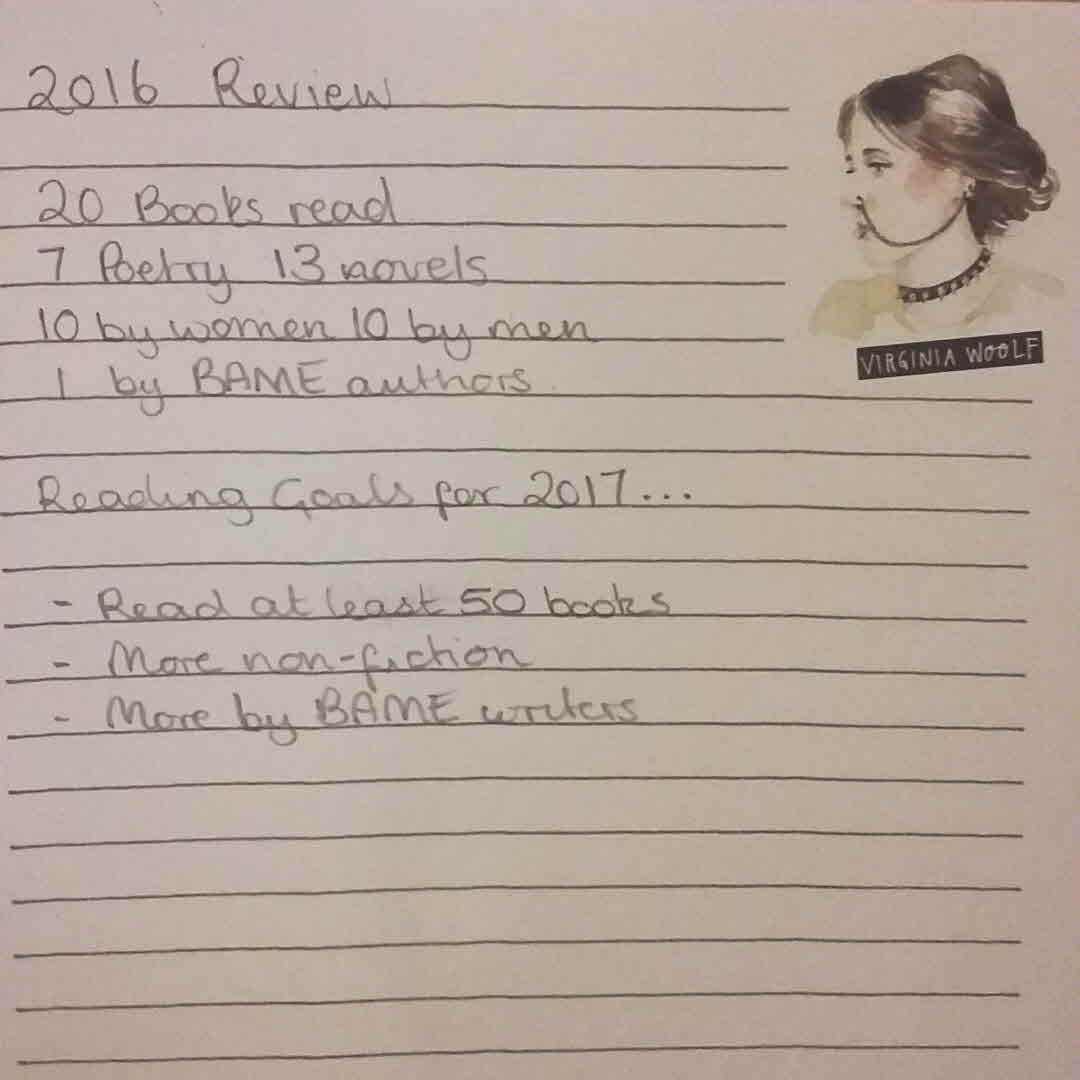 2016 Review
20 Books read
7 Poetry 13 novels
10 by women 10 by men
1 by BAME authors.
VIRGINIA WOOLF
Reading Goals for 2017...
- Read at least 50 books
- More non-fiction
- More by BAME writers